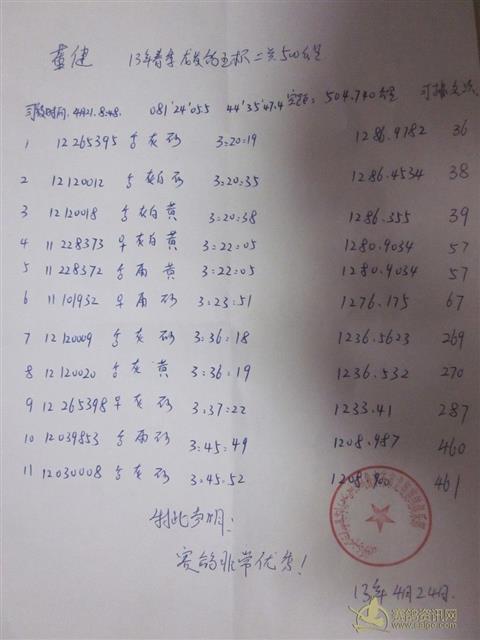 董健 13年春季龙发鸽王杯二关500公里
司放时间:4月21.8:48. 081°24′055 44°35′47.4 空距:504.740公里 司放名次
1 12 265395 灰砂 3:20:19 1286.9782 36
2 12 120012 灰白砂 3:20:35 1286.4534 38
3 12 120018 灰白黄 3:20:38 1286.355 39
4 11 228373 灰白黄 3:22:05 1280.9034 57
5 11 228372 雨黄 3:22:05 1280.9034 57
6 11 101932 雨砂 3:23:51 1276.175 67
7 12 120009 灰砂 3:36:18 1236.5623 269
8 12 120020 灰黄 3:36:19 1236.532 270
9 12 265398 灰砂 3:37:22 1233.41 287
10 12 039853 雨砂 3:45:49 1208.987 460
11 12 030008 灰砂 3:45:52 1208.900 461
特此声明:
赛鸽非常优秀!
13年4月24日.
赛鸽资讯网
www.saige.com